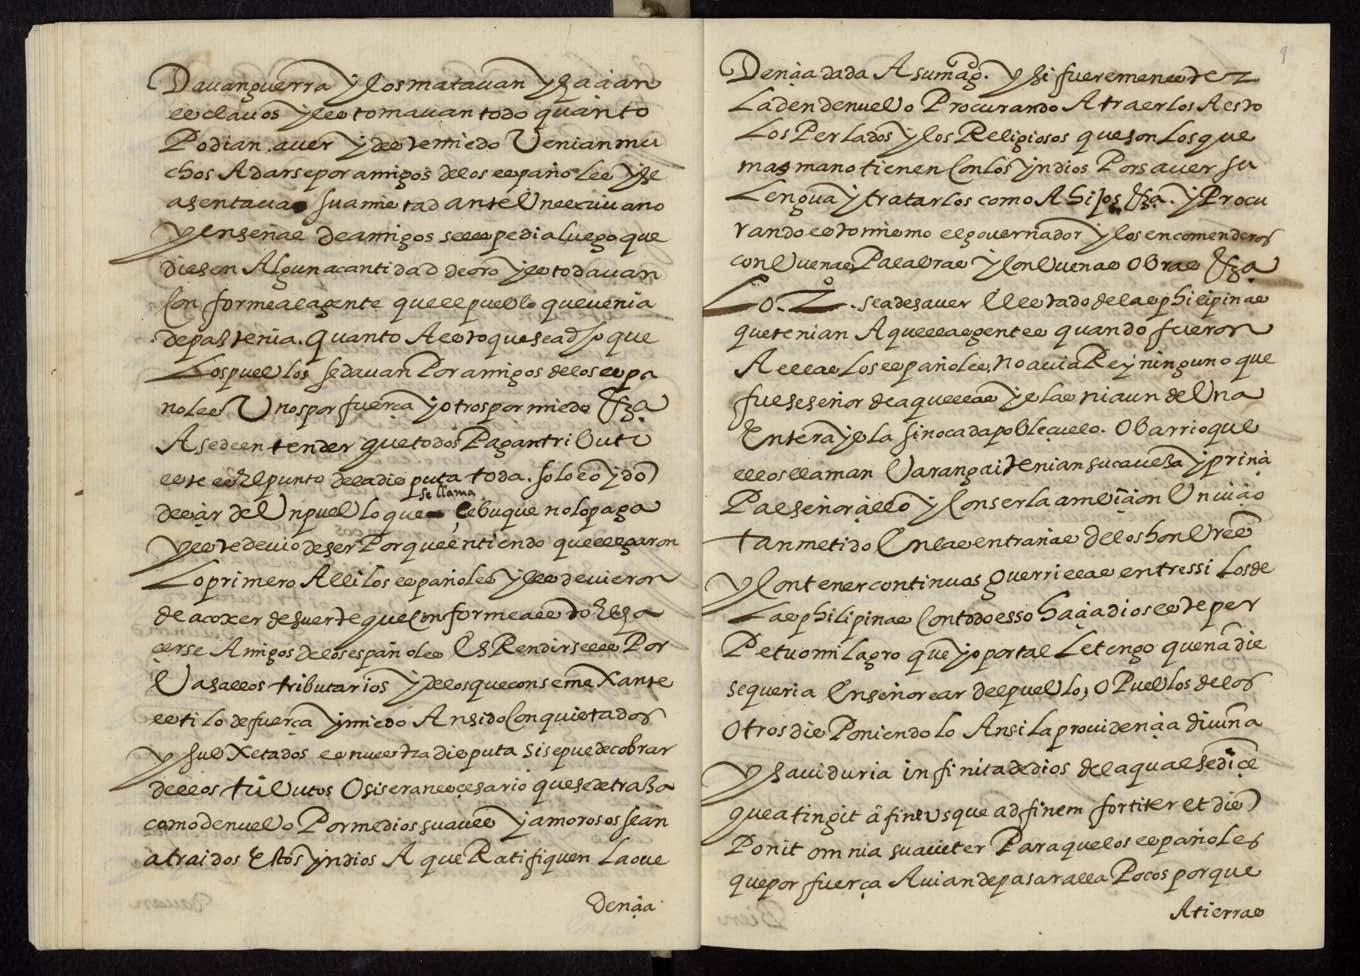 Davan guerra y los matavan y haçian
esclavos y les tomavan todo quanto
Podian aver y deste miedo Venian mu
chos A darse por amigos de los españoles y se
asentava su amistad ante Un escrivano
y En señal de amigos se les pedia luego que
diesen Alguna cantidad de oro y estodavan
Conforme a la gente que el pueblo que venia
de paz tenia. Quanto A esto que sea dho que
Los pueblos se davan Por amigos de los espa
noles Unos por fuerça y otros por miedo &za
A se de entender que todos Pagan tributo
este es El punto de la disputa toda. solo so y dō
deçir de Un pueblo que se llama Çebu que no lo paga
y este devio de ser Porque entiendo que llegaron
Lo primero Alli los españoles y les devieron
de acoxer de suerte que Conforme a esto El ha
çerse Amigos de los españoles Es Rendirseles Por
Vasallos tributarios y de los que con semexante
estilo de fuerça y miedo An sido Conquistados
y subxetados es nuestra disputa si se puede cobrar
dellos tributos O si sera neçesario que se de traza
como de nuebo Por medios suaves y amorosos sean
atraidos Estos yndios A que Ratifiquen La ove
dençia
9
Dençia dada A su mag. y si fuere menester
La den de nuebo Procurando Atraerlos A esto
Los Perlados y los Religiosos que son Los que
mas mano tienen Con los yndios Por saver su
Lengua y tratarlos como A hijos &za. y Procu
rando esto mismo el governador y los encomenderos
con buenas Palabras y Con buenas obras &za
Lo. 2º. sea de saver El estado de las philipinas
que tenian Aquellas gentes quando fueron
A ellas Los españoles, No avia Rey ninguno que
fuese señor de aquellas yslas ni aun de Una
Entera ysla sino cada pobleçuelo. O barrio que
ellos llaman Varangai tenian su caveza y prinçi
Pal señorçillo y Con ser la ambiçion Un viçio
tan metido En las entrañas de los honbres
y Con tener continuas guerrillas entre ssi Los de
Las philipinas Con todo esso haçia dios este per
Petuo milagro que yo por tal Le tengo que nadie
se queria Enseñorear del pueblo, O Pueblos de los
Otros disPoniendo lo Ansi la providençia divina
y saviduria infinita de dios de la qual se diçe
que atingit a fine usque ad finem fortiter et dis
Ponit omnia suaviter Para que los españoles
que por fuerça Avian de pasar alla Pocos porque
A tierras